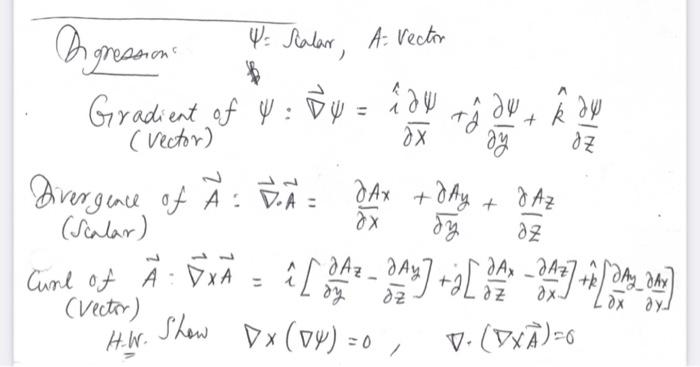 Digression: ψ = Scalar, A = Vector
Gradient of ψ : ∇⃗ψ = î ∂ψ/∂x + ĵ ∂ψ/∂y + k̂ ∂ψ/∂z
(Vector)
Divergence of A⃗ : ∇⃗.A⃗ = ∂Ax/∂x + ∂Ay/∂y + ∂Az/∂z
(Scalar)
Curl of A⃗ : ∇⃗×A⃗ = î [∂Az/∂y - ∂Ay/∂z] + ĵ [∂Ax/∂z - ∂Az/∂x] + k̂ [∂Ay/∂x - ∂Ax/∂y]
(Vector)
H.W. Show ∇×(∇ψ) = 0 , ∇.(∇×A⃗) = 0